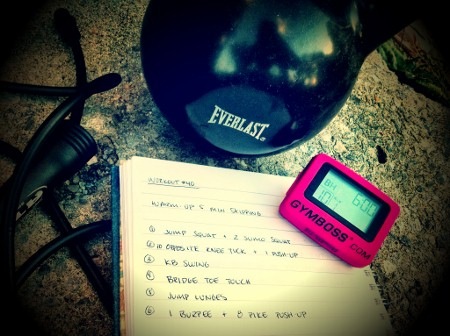 EVERLAST
WORKOUT #40
WARM UP 5 MIN SKIPPING
① JUMP SQUAT + 2 SUMO SQUAT
② 10 OPPOSITE KNEE TUCK + 1 PUSH-UP
③ KB SWING
④ BRIDGE TOE TOUCH
⑤ JUMP LUNGES
⑥ 1 BURPEE + 8 PIKE PUSH-UP
GYMBOSS.COM